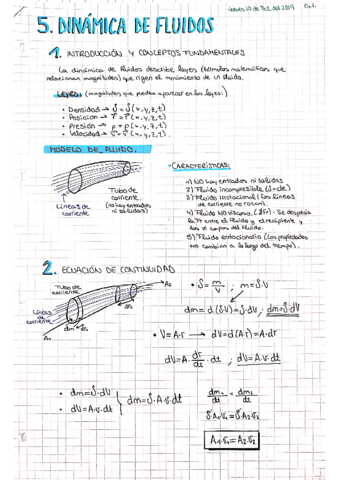 Jueves 10 de Oct. del 2019
5. DINÁMICA DE FLUIDOS
1. INTRODUCCIÓN Y CONCEPTOS FUNDAMENTALES
La dinámica de fluidos describe leyes (fórmulas matemáticas que
relacionan magnitudes) que rigen el movimiento de un fluido.
LEYES: (magnitudes que pueden aparecer en las leyes:)
• Densidad → ρ = ρ(x,y,z,t)
• Posicion → r̄ = r̄(x,y,z,t)
• Presión → p = p(x,y,z,t)
• Velocidad → v̄ = v̄(x,y,z,t).
MODELO DE FLUIDO.
Líneas de
corriente
Tubo de
corriente
(no hay entradas
ni salidas)
CARACTERÍSTICAS:
1) NO hay entradas ni salidas
2) Fluido incompresible (ρ=cte).
3) Fluido irrotacional (las líneas
de corriente no rotan).
4) Fluido NO viscoso. (Fr) - Se desprecia
la Fr entre el fluido y el recipiente y
las ≠ capas del fluido.
5) Fluido estacionario (las propiedades
NO cambian a lo largo del tiempo).
2. ECUACIÓN DE CONTINUIDAD
Tubo de
corriente
Líneas
de
corriente
A₁
dm
A₂
• ρ = m/V ; m = ρ·V
dm = d(ρ·V) = ρ·dV ; dm = ρ·dV
• V = A·r → dV = d(A·r) = A·dr
dV = A·dr/dt·dt ; dV = A·v·dt
• dm = ρ·dV
• dV = A·v·dt
dm = ρ·A·v·dt
dm₁/dt = dm₂/dt
ρA₁·v₁ = ρ·A₂·v₂
A₁·v₁ = A₂·v₂